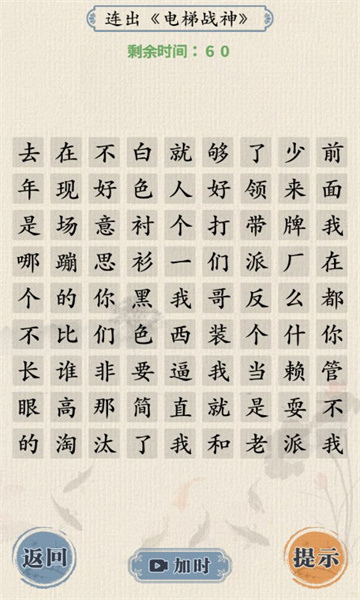 连出《电梯战神》
剩余时间：60
去在不白就够了少前
年现好色人好领来面
是场意衬个打带牌我
哪蹦思衫一们派厂在
个的你黑我哥反么都
不比们色西装个什你
长谁非要逼我当赖管
眼高那简直就是耍不
的淘汰了我和老派我
返回
加时
提示